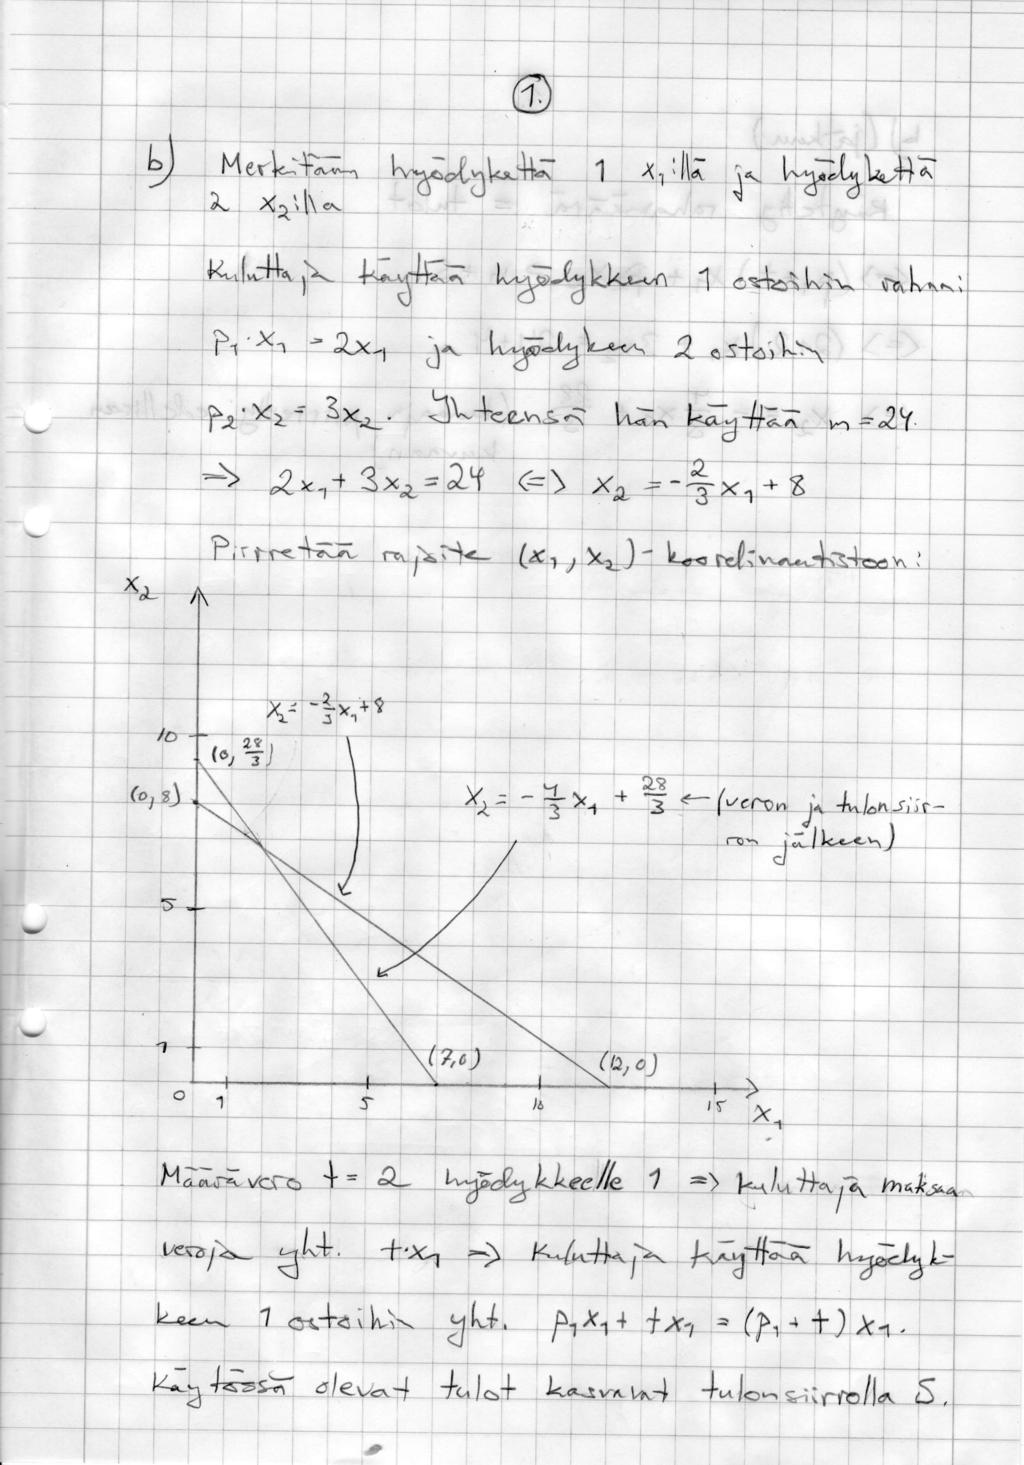 1.
b) Merkitään hyödykettä 1 x₁:illä ja hyödykettä
2 x₂:illa
Kuluttaja käyttää hyödykkeen 1 ostoihin rahaa:
p₁·x₁ = 2x₁ ja hyödykeen 2 ostoihin
p₂·x₂ = 3x₂. Yhteensä hän käyttää m = 24.
=> 2x₁ + 3x₂ = 24 <=> x₂ = -2/3 x₁ + 8
Piirretää rajoite (x₁, x₂)-koordinaatistoon:
x₂
x₂ = -2/3 x₁ + 8
10
(0, 28/3)
(0,8)
x₂ = -4/3 x₁ + 28/3 ← (veron ja tulonsiir-
ron jälkeen)
5
1
(7,0)
(12,0)
0 1 5 10 15
x₁
Määrävero t = 2 hyödykkeelle 1 => kuluttaja maksaa
veroja yht. t·x₁ => kuluttaja käyttää hyödyk-
keen 1 ostoihin yht. p₁x₁ + tx₁ = (p₁ + t) x₁.
Käytössä olevat tulot kasvavat tulonsiirrolla S.